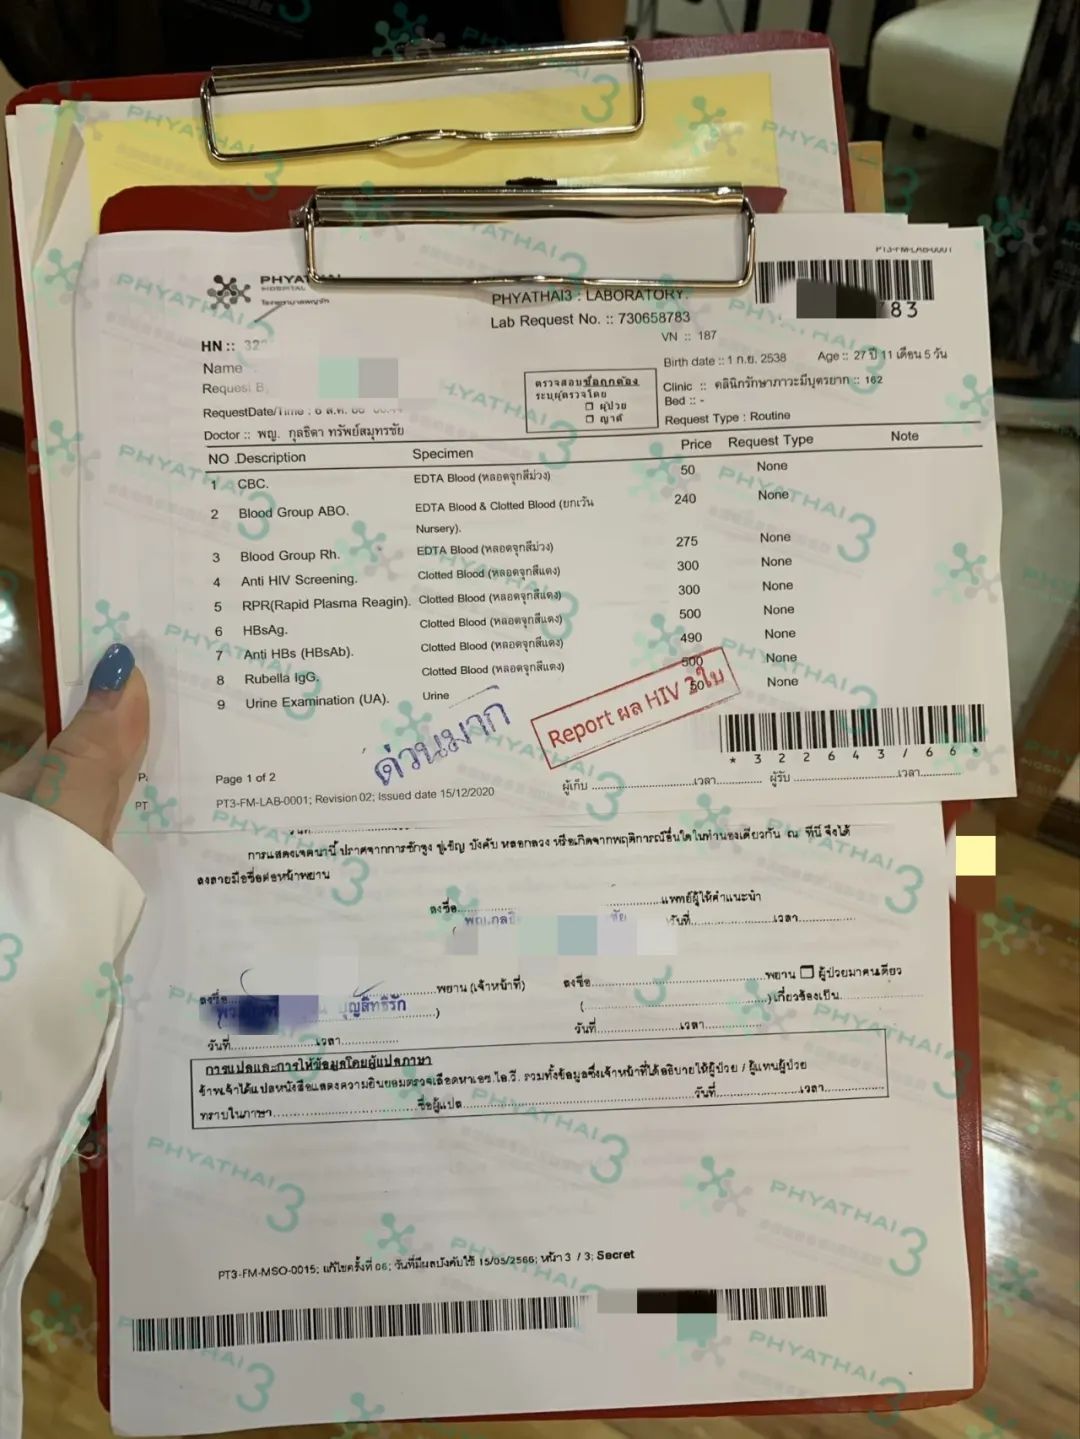 PT3-FM-LAB-0001
PHYATHAI
HOSPITAL
โรงพยาบาลพญาไท
PHYATHAI3 : LABORATORY.
Lab Request No. :: 730658783
83
VN :: 187
HN :: 32
Name
Request B
RequestDate/Time : 6 ส.ค. 66
Doctor :: พญ. กุลธิดา ทรัพย์สมุทรชัย
ตรวจสอบชื่อถูกต้อง
ระบุผู้ตรวจโดย
☐ ผู้ป่วย
☐ ญาติ
Birth date :: 1 ก.ย. 2538 Age :: 27 ปี 11 เดือน 5 วัน
Clinic :: คลินิกรักษาภาวะมีบุตรยาก :: 162
Bed :: -
Request Type : Routine
NO Description Specimen Price Request Type Note
1 CBC. EDTA Blood (หลอดจุกสีม่วง) 50 None
2 Blood Group ABO. EDTA Blood & Clotted Blood (ยกเว้น Nursery). 240 None
3 Blood Group Rh. EDTA Blood (หลอดจุกสีม่วง) 275 None
4 Anti HIV Screening. Clotted Blood (หลอดจุกสีแดง) 300 None
5 RPR(Rapid Plasma Reagin). Clotted Blood (หลอดจุกสีแดง) 300 None
6 HBsAg. Clotted Blood (หลอดจุกสีแดง) 500 None
7 Anti HBs (HBsAb). Clotted Blood (หลอดจุกสีแดง) 490 None
8 Rubella IgG. Clotted Blood (หลอดจุกสีแดง) 500 None
9 Urine Examination (UA). Urine 50 None
ด่วนมาก
Report ผล HIV 3 ใบ
* 3 2 2 6 4 3 / 6 6 *
Page 1 of 2
PT3-FM-LAB-0001; Revision 02; Issued date 15/12/2020
ผู้เก็บ ........ เวลา ........ ผู้รับ ........ เวลา ........
การแสดงเจตนานี้ ปราศจากการชักจูง ขู่เข็ญ บังคับ หลอกลวง หรือเกิดจากพฤติการณ์อื่นใดในทำนองเดียวกัน ณ ที่นี้ จึงได้
ลงลายมือชื่อต่อหน้าพยาน
ลงชื่อ ........ แพทย์ผู้ให้คำแนะนำ
วันที่ ........ เวลา ........
ลงชื่อ ........ พยาน (เจ้าหน้าที่)
บุญสิทธิรัก
วันที่ ........ เวลา ........
ลงชื่อ ........ พยาน ☐ ผู้ป่วยมาคนเดียว
( ........ ) เกี่ยวข้องเป็น ........
วันที่ ........ เวลา ........
การแปลและการให้ข้อมูลโดยผู้แปลภาษา
ข้าพเจ้าได้แปลหนังสือแสดงความยินยอมตรวจเลือดหาเอช.ไอ.วี. รวมทั้งข้อมูลซึ่งเจ้าหน้าที่ได้อธิบายให้ผู้ป่วย / ผู้แทนผู้ป่วย
ทราบในภาษา ........ ชื่อผู้แปล ........ วันที่ ........ เวลา ........
PT3-FM-MSO-0015; แก้ไขครั้งที่ 06; วันที่มีผลบังคับใช้ 15/05/2566; หน้า 3 / 3; Secret
PHYATHAI 3